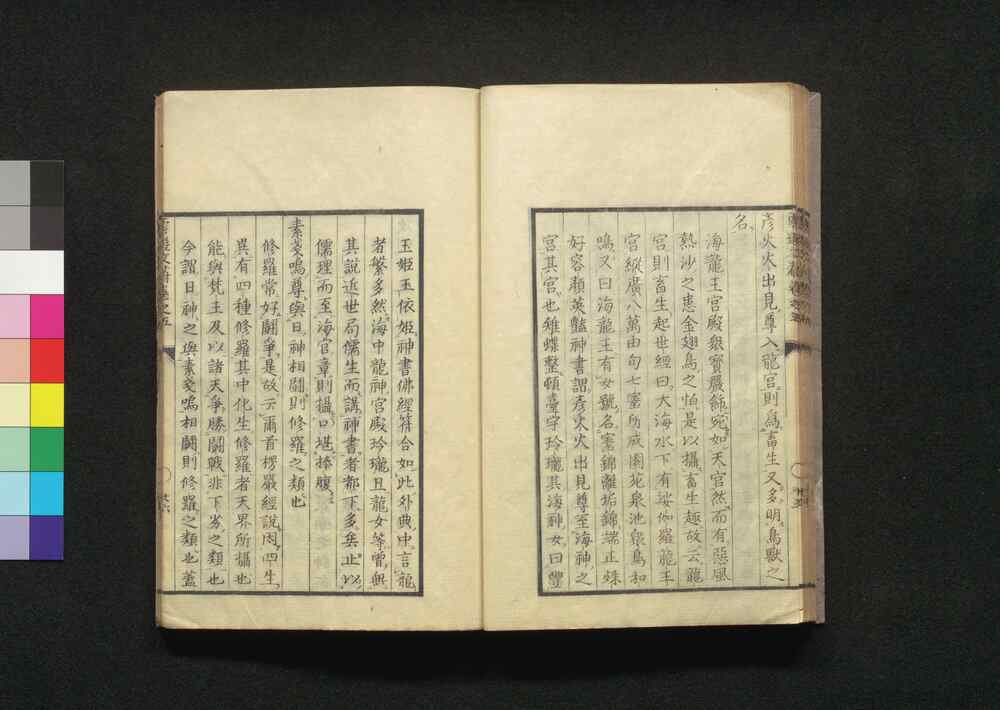 彦火火出見尊入龍宮則為畜生又多明鳥獸之
名
海龍王宮殿衆寶嚴飾宛如天宮然而有惡風
熱沙之患金翅鳥之怕是以攝畜生趣故云龍
宮則畜生起世經曰大海水下有娑伽羅龍王
宮縱廣八萬由旬七寳所成園苑泉池衆鳥和
鳴又曰海龍王有女號名寳錦離垢錦端正姝
好容顏英豔神書謂彦火火出見尊至海神之
宮其宮也雉堞整頓臺宇玲瓏其海神女曰豐
玉姫玉依姫神書佛經符合如此外典中言龍
者繁多然海中龍神宮殿玲瓏且龍女等曽無
其説近世局儒生而講神書者都下多矣止以
儒理而至海宮章則攝口堪捧腹
素戔嗚尊與日神相鬪則修羅之類也
修羅常好鬪爭是故云爾首楞嚴經説因四生
異有四種修羅其中化生修羅者天界所攝也
能與梵王及以諸天爭勝鬪戰非下劣之類也
今謂日神之與素戔嗚相鬪則修羅之類也蓋
廿六